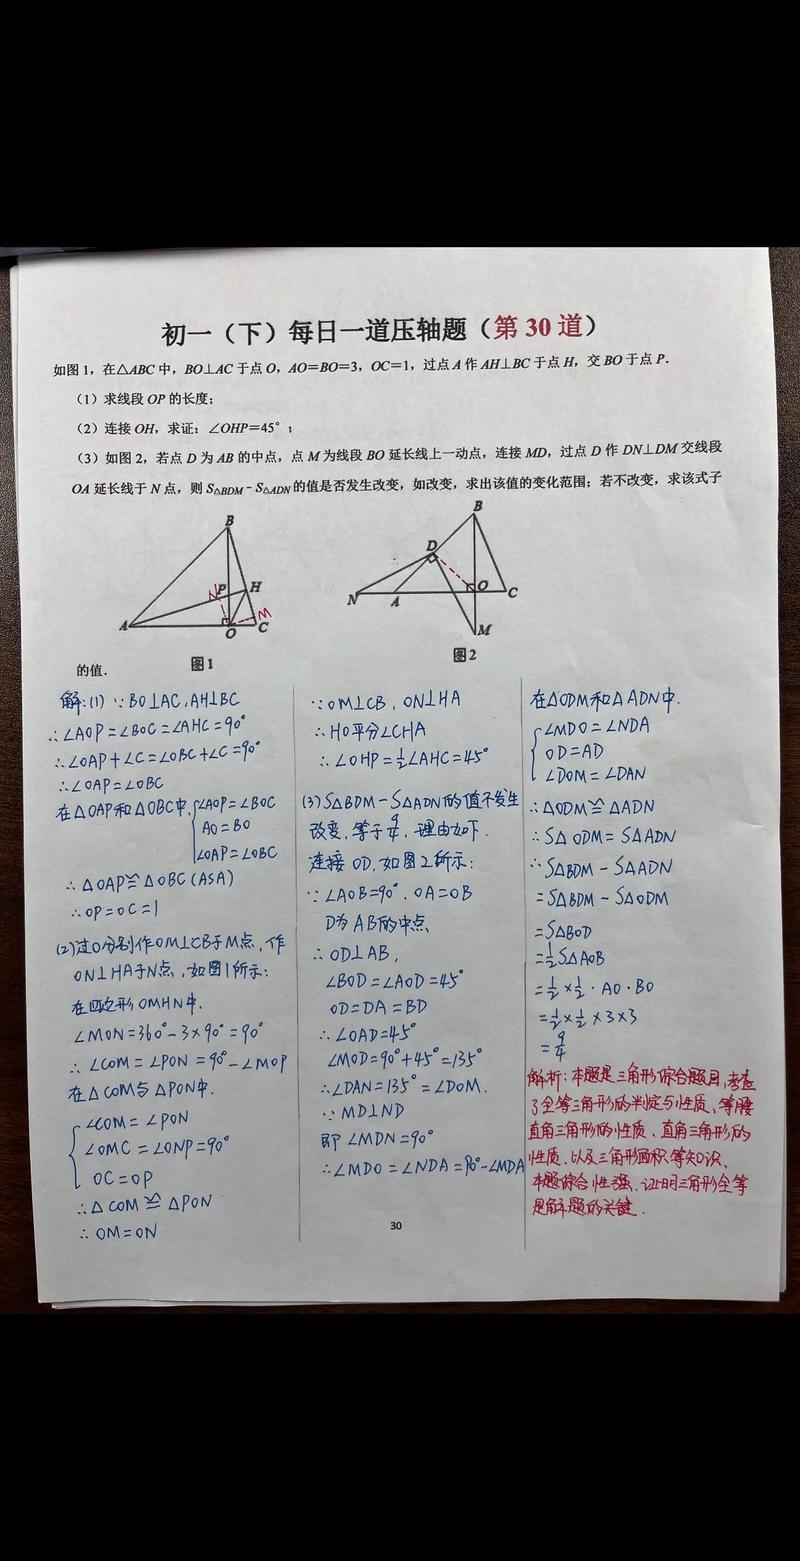 初一（下）每日一道压轴题（第 30 道）
如图 1，在△ABC 中，BO⊥AC 于点 O，AO＝BO＝3，OC＝1，过点 A 作 AH⊥BC 于点 H，交 BO 于点 P．
（1）求线段 OP 的长度；
（2）连接 OH，求证：∠OHP＝45°；
（3）如图 2，若点 D 为 AB 的中点，点 M 为线段 BO 延长线上一动点，连接 MD，过点 D 作 DN⊥DM 交线段
OA 延长线于 N 点，则 S△BDM﹣S△ADN 的值是否发生改变，如改变，求出该值的变化范围；若不改变，求该式子
B
P
H
N
M
A
O
C
图1
B
D
N
A
O
C
M
图2
的值．
解：(1) ∵BO⊥AC，AH⊥BC
∴∠AOP=∠BOC=∠AHC=90°
∴∠OAP+∠C=∠OBC+∠C=90°
∴∠OAP=∠OBC
在△OAP和△OBC中，
∠AOP=∠BOC
AO=BO
∠OAP=∠OBC
∴△OAP≌△OBC（ASA）
∴OP=OC=1
(2)过O分别作OM⊥CB于M点，作
ON⊥HA于N点，如图1所示：
在四边形OMHN中，
∠MON=360°-3×90°=90°
∴∠COM=∠PON=90°-∠MOP
在△COM与△PON中.
∠COM=∠PON
∠OMC=∠ONP=90°
OC=OP
∴△COM≌△PON
∴OM=ON
∵OM⊥CB，ON⊥HA
∴HO平分∠CHA
∴∠OHP=1/2∠AHC=45°
(3) S△BDM-S△ADN的值不发生
改变，等于9/4，理由如下.
连接OD，如图2所示：
∵∠AOB=90°，OA=OB
D为AB的中点
∴OD⊥AB，
∠BOD=∠AOD=45°
OD=DA=BD
∴∠OAD=45°
∠MOD=90°+45°=135°
∴∠DAN=135°=∠DOM.
∵MD⊥ND
即∠MDN=90°
∴∠MDO=∠NDA=90°-∠MDA
在△ODM和△ADN中.
∠MDO=∠NDA
OD=AD
∠DOM=∠DAN
∴△ODM≌△ADN
∴S△ODM=S△ADN
∴S△BDM-S△ADN
=S△BDM-S△ODM
=S△BOD
=1/2S△AOB
=1/2×1/2·AO·BO
=1/2×1/2×3×3
=9/4
解析：本题是三角形综合题目，考查
了全等三角形的判定与性质、等腰
直角三角形的性质、直角三角形的
性质、以及三角形面积等知识、
本题综合性强、证明三角形全等
是解题的关键.
30